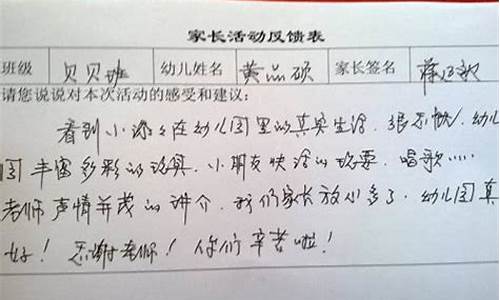 家长活动反馈表
班级 贝贝班 幼儿姓名 黄品硕 家长签名
请您说说对本次活动的感受和建议:
看到小孩在幼儿园里的真实生活,很欣慰,幼儿
园丰富多彩的玩具,小朋友快活的玩耍,唱歌……
老师声情并茂的讲介,我们家长放心多了,幼儿园真
好!感谢老师!你们辛苦啦!